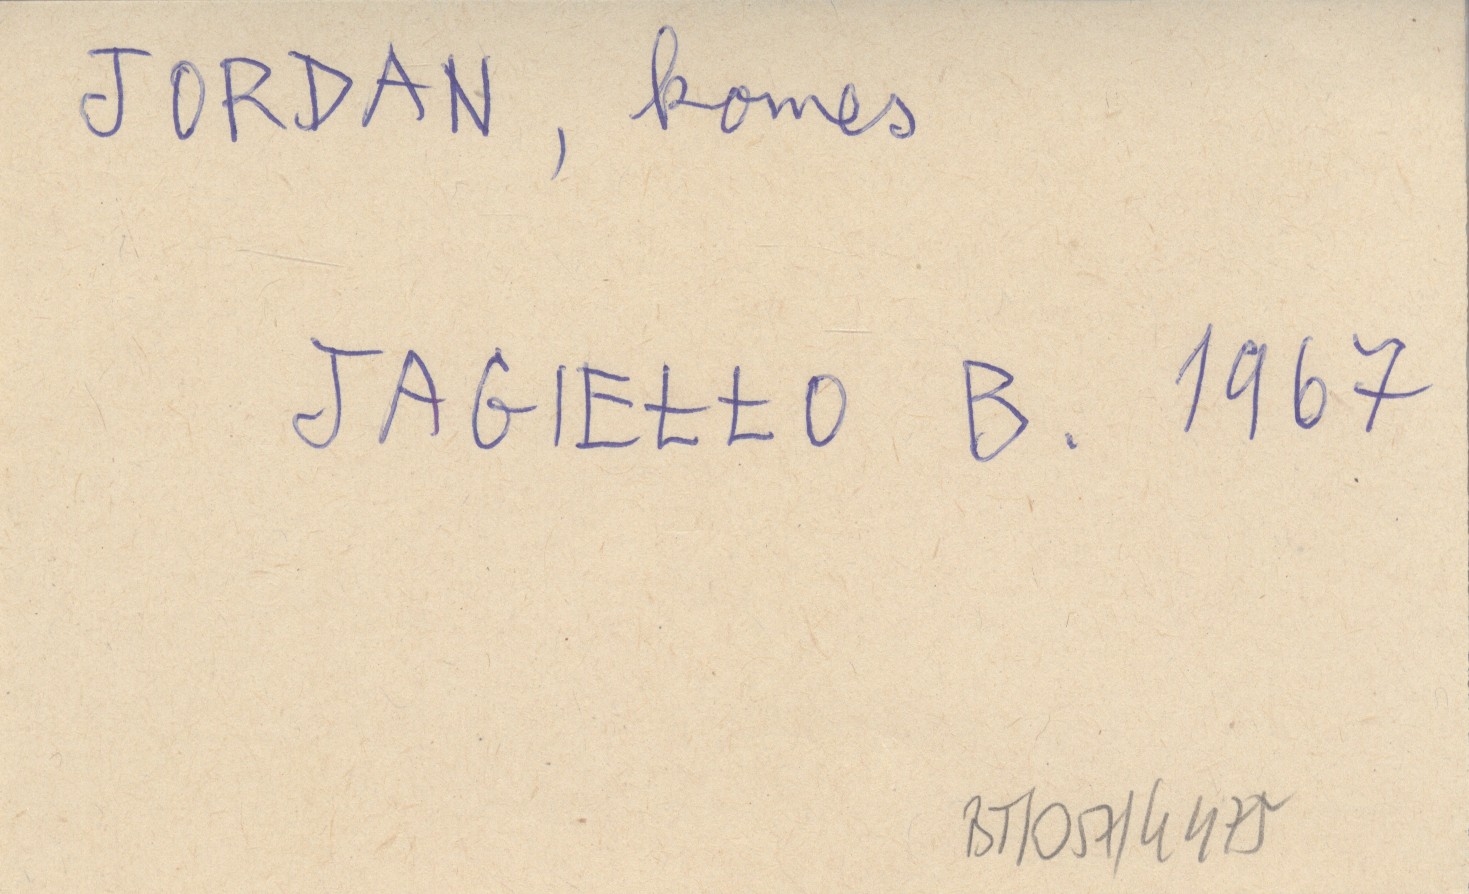 JORDAN, komes
JAGIEŁŁO B. 1967
BT/057/4475